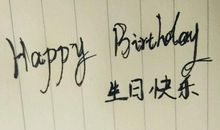 Happy Birthday
生日快乐